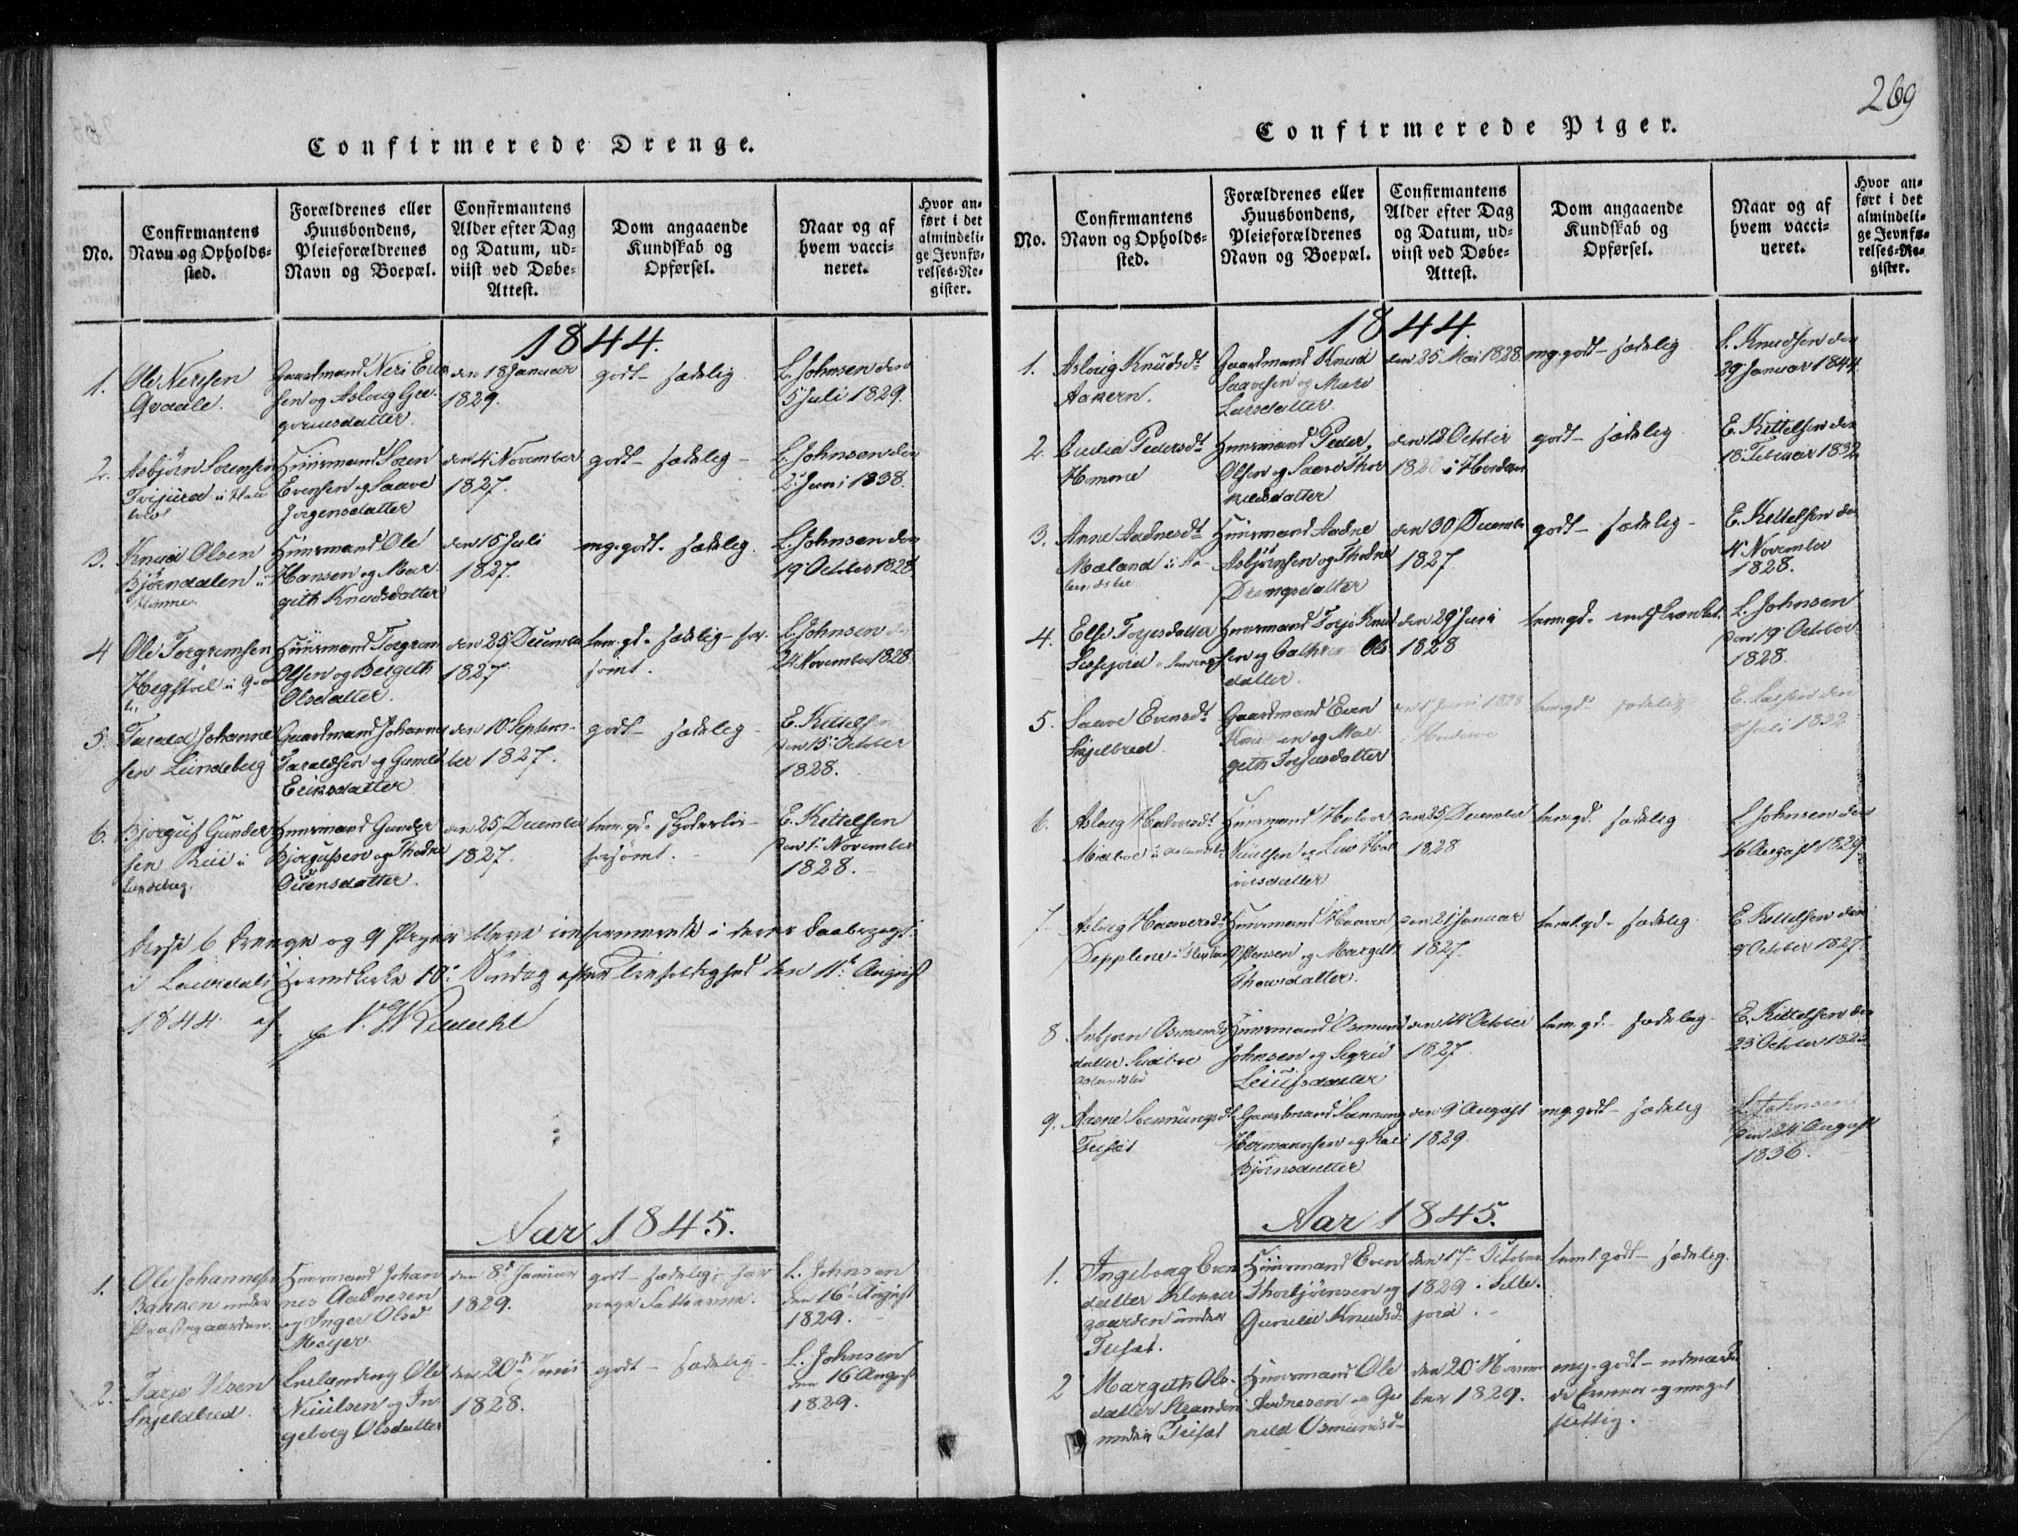 269
Confirmerede Drenge.
No.
Confirmantens
Navn og Opholds-
sted.
Forældrenes eller
Huusbondens,
Pleieforældrenes
Navn og Boepæl.
Confirmantens
Alder efter Dag
og Datum, ud-
viist ved Døbe-
Attest.
Dom angaaende
Kundskab og
Opførsel.
Naar og af
hvem vacci-
neret.
Hvor an-
ført i det
almindeli-
ge Jevnfø-
relses-Re-
gister.
1844.
1.
Ole Nerisen
Qvaale.
Gaardmand Neri
sen og Aslaug Gre-
goriusdatter
den 18 Januar
1829.
godt - sædelig
L. Johnsen den
5 Juli 1829.
2.
Asbjörn Sörensen
Huusmand Sören
Evensen og Saave
Jörgensdatter
den 4 November
1827.
godt - sædelig -
L. Johnsen den
2 Juni 1838.
3.
Knud Olsen
Björndalen i
Homme
Huusmand Ole
Hansen og Mar-
gith Knudsdatter
den 15 Juli
1827.
mg. godt - sædelig.
L. Johnsen den
19 October 1828
4
Ole Torgrimsen
Hegstoel i
Huusmand Torgrim
Olsen og Bergith
Olsdatter.
den 25 December
1827.
tem. gd. sædelig - for-
sömt.
L. Johnsen den
24 November 1828.
5.
Tarald Johanne-
sen Lundeberg
Gaardmand Johannes
Taraldsen og Gunild
Eriksdatter
den 10 Septem-
ber 1827.
godt - sædelig -
E. Kittelsen
den 15 October
1828.
6.
Bjorguf Gunder
sen Rui i
Lundeberg.
Huusmand Gunder
Bjorgufsen og Thodne
Ouensdatter.
den 25 December
1827.
tem. gd.
forsömt. -
E. Kittelsen
den 1 November
1828.
Disse 6 Drenge og 9 Piger bleve confirmerede i deres Daabspagt
i Laurdals Hovedkirke 10de Söndag efter Trefoldighed den 11te August
1844 af
Aar 1845.
1.
Ole Johannesen
Bakken under
Præstegaarden.
Huusmand Johan
nes Aadnesen
og Inger Olsd
Meyer
den 8de Januar
1829.
godt - sædelig;
L. Johnsen
den 16 August
1829.
2.
Tarje Olsen
Skjeldbred.
Ole
Nuulsen og In-
geborg Olsdatter
den 20de Juni
1828.
godt - sædelig -
L. Johnsen
den 16 August
1829.
Confirmerede Piger.
No.
Confirmantens
Navn og Opholds-
sted.
Forældrenes eller
Huusbondens,
Pleieforældrenes
Navn og Boepæl.
Confirmantens
Alder efter Dag
og Datum, ud-
viist ved Døbe-
Attest.
Dom angaaende
Kundskab og
Opførsel.
Naar og af
hvem vacci-
neret.
Hvor an-
ført i det
almindeli-
ge Jevnfø-
relses-Re-
gister.
1844.
1.
Aslaug Knudsdt
Aakern.
Gaardmand Knud
Saavesen og Mari
Larsdatter
den 25 Mai 1828.
mg. godt - sædelig
L. Knudsen den
29 Januar 1844
2.
Pedersdt
Homme
Huusmand Peder
Olsen og Saave Thor
kildsdatter
den 18 October
godt - sædelig
E. Kittelsen den
18 Februar 1832
3.
Anne Aadnesdt
Mæland i
Huusmand Aadne
Asbjörnsen og Thodne
Drengsdatter
den 30 December
1827
godt - sædelig -
E. Kittelsen den
4 November
1828.
4.
Else Torjesdatter
Huusmand Torje Knud
sen og Ols
datter.
den 29 Juni
1828
L. Johnsen
den 19 October
1828.
5.
Saave Evensdt
Skjelbred.
Gaardmand Even
og Mar-
geth Torjusdatter
temgd. sædelig
6.
Aslaug Halvorsdt
Huusmand Halvor
Nuulsen og Liv Hal
vorsdatter
den 25 December
1828
temgd. sædelig
L. Johnsen den
16 August 1829
7.
Aslaug Haavorsdt
Huusmand Haavor
Ostensen og Margith
Thorsdatter.
den 21 Januar
1827.
teml. gd. - sædelig.
E. Kittelsen den
9 October 1827.
8
Anbjorn Osmunds
datter
Huusmand Osmund
Johnsen og Sigrid
Leiufsdatter
den 14 October
1827.
tem. gd. - sædelig.
E. Kittelsen den
23 October
9.
Aasne Sæmungsdt
Trisæt
Gaardmand Sæmung
Hermannsen og Kari
Björnsdatter
den 9 August
1829.
mg godt - sædelig
L. Johnsen
den 24 August
1836.
Aar 1845.
1.
Ingeborg Even
datter Klokker
gaarden under
Trisæt.
Huusmand Even
Thorbjörnsen og
Gunild Knudsd
den 17 October
1829. Sille-
jord. -
teml. godt - sædelig.
2
Margith Ols-
datter Stranden
under Trisæt
Huusmand Ole
Aadnesen og Gu-
nild Osmundsd-
den 20 Novem
ber 1829.
mg. godt - udmærke
de Evner og meget
flittig.